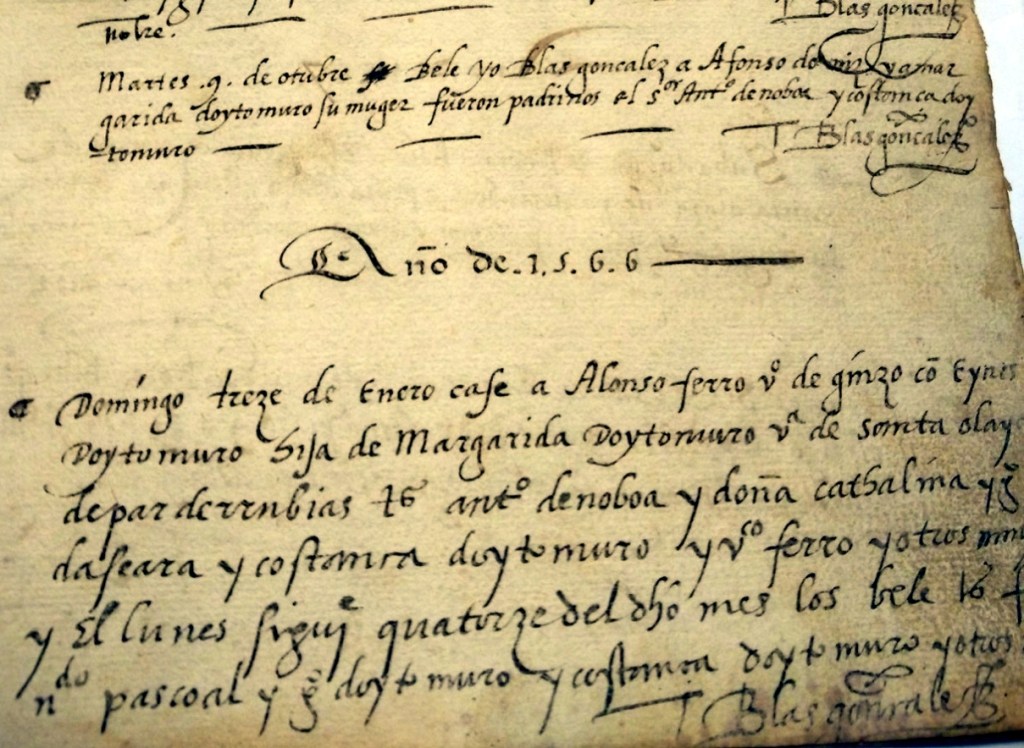 nobre. Blas gonçalez
Martes .9. de otubre Bele yo Blas gonçalez a Afonso do y a mar
garida doytomuro su muger fueron padrinos el s.or Ant.o de noboa y costança doy
tomuro Blas gonçalez
Año de .1.5.6.6
Domingo treze de Enero case a Alonso ferro v.o de ginzo cō Eynes
Doytomuro hija de Margarida Doytomuro v.a de santa olay
de parderrubias t.os ant.o de noboa y doña cathalina y g.o
daseara y costança doytomuro y v.co ferro yotros
y El lunes sigui.e quatorze del dho mes los bele t.os
n.do pascoal y g.o doytomuro y costança doytomuro yotros
Blas gonçalez